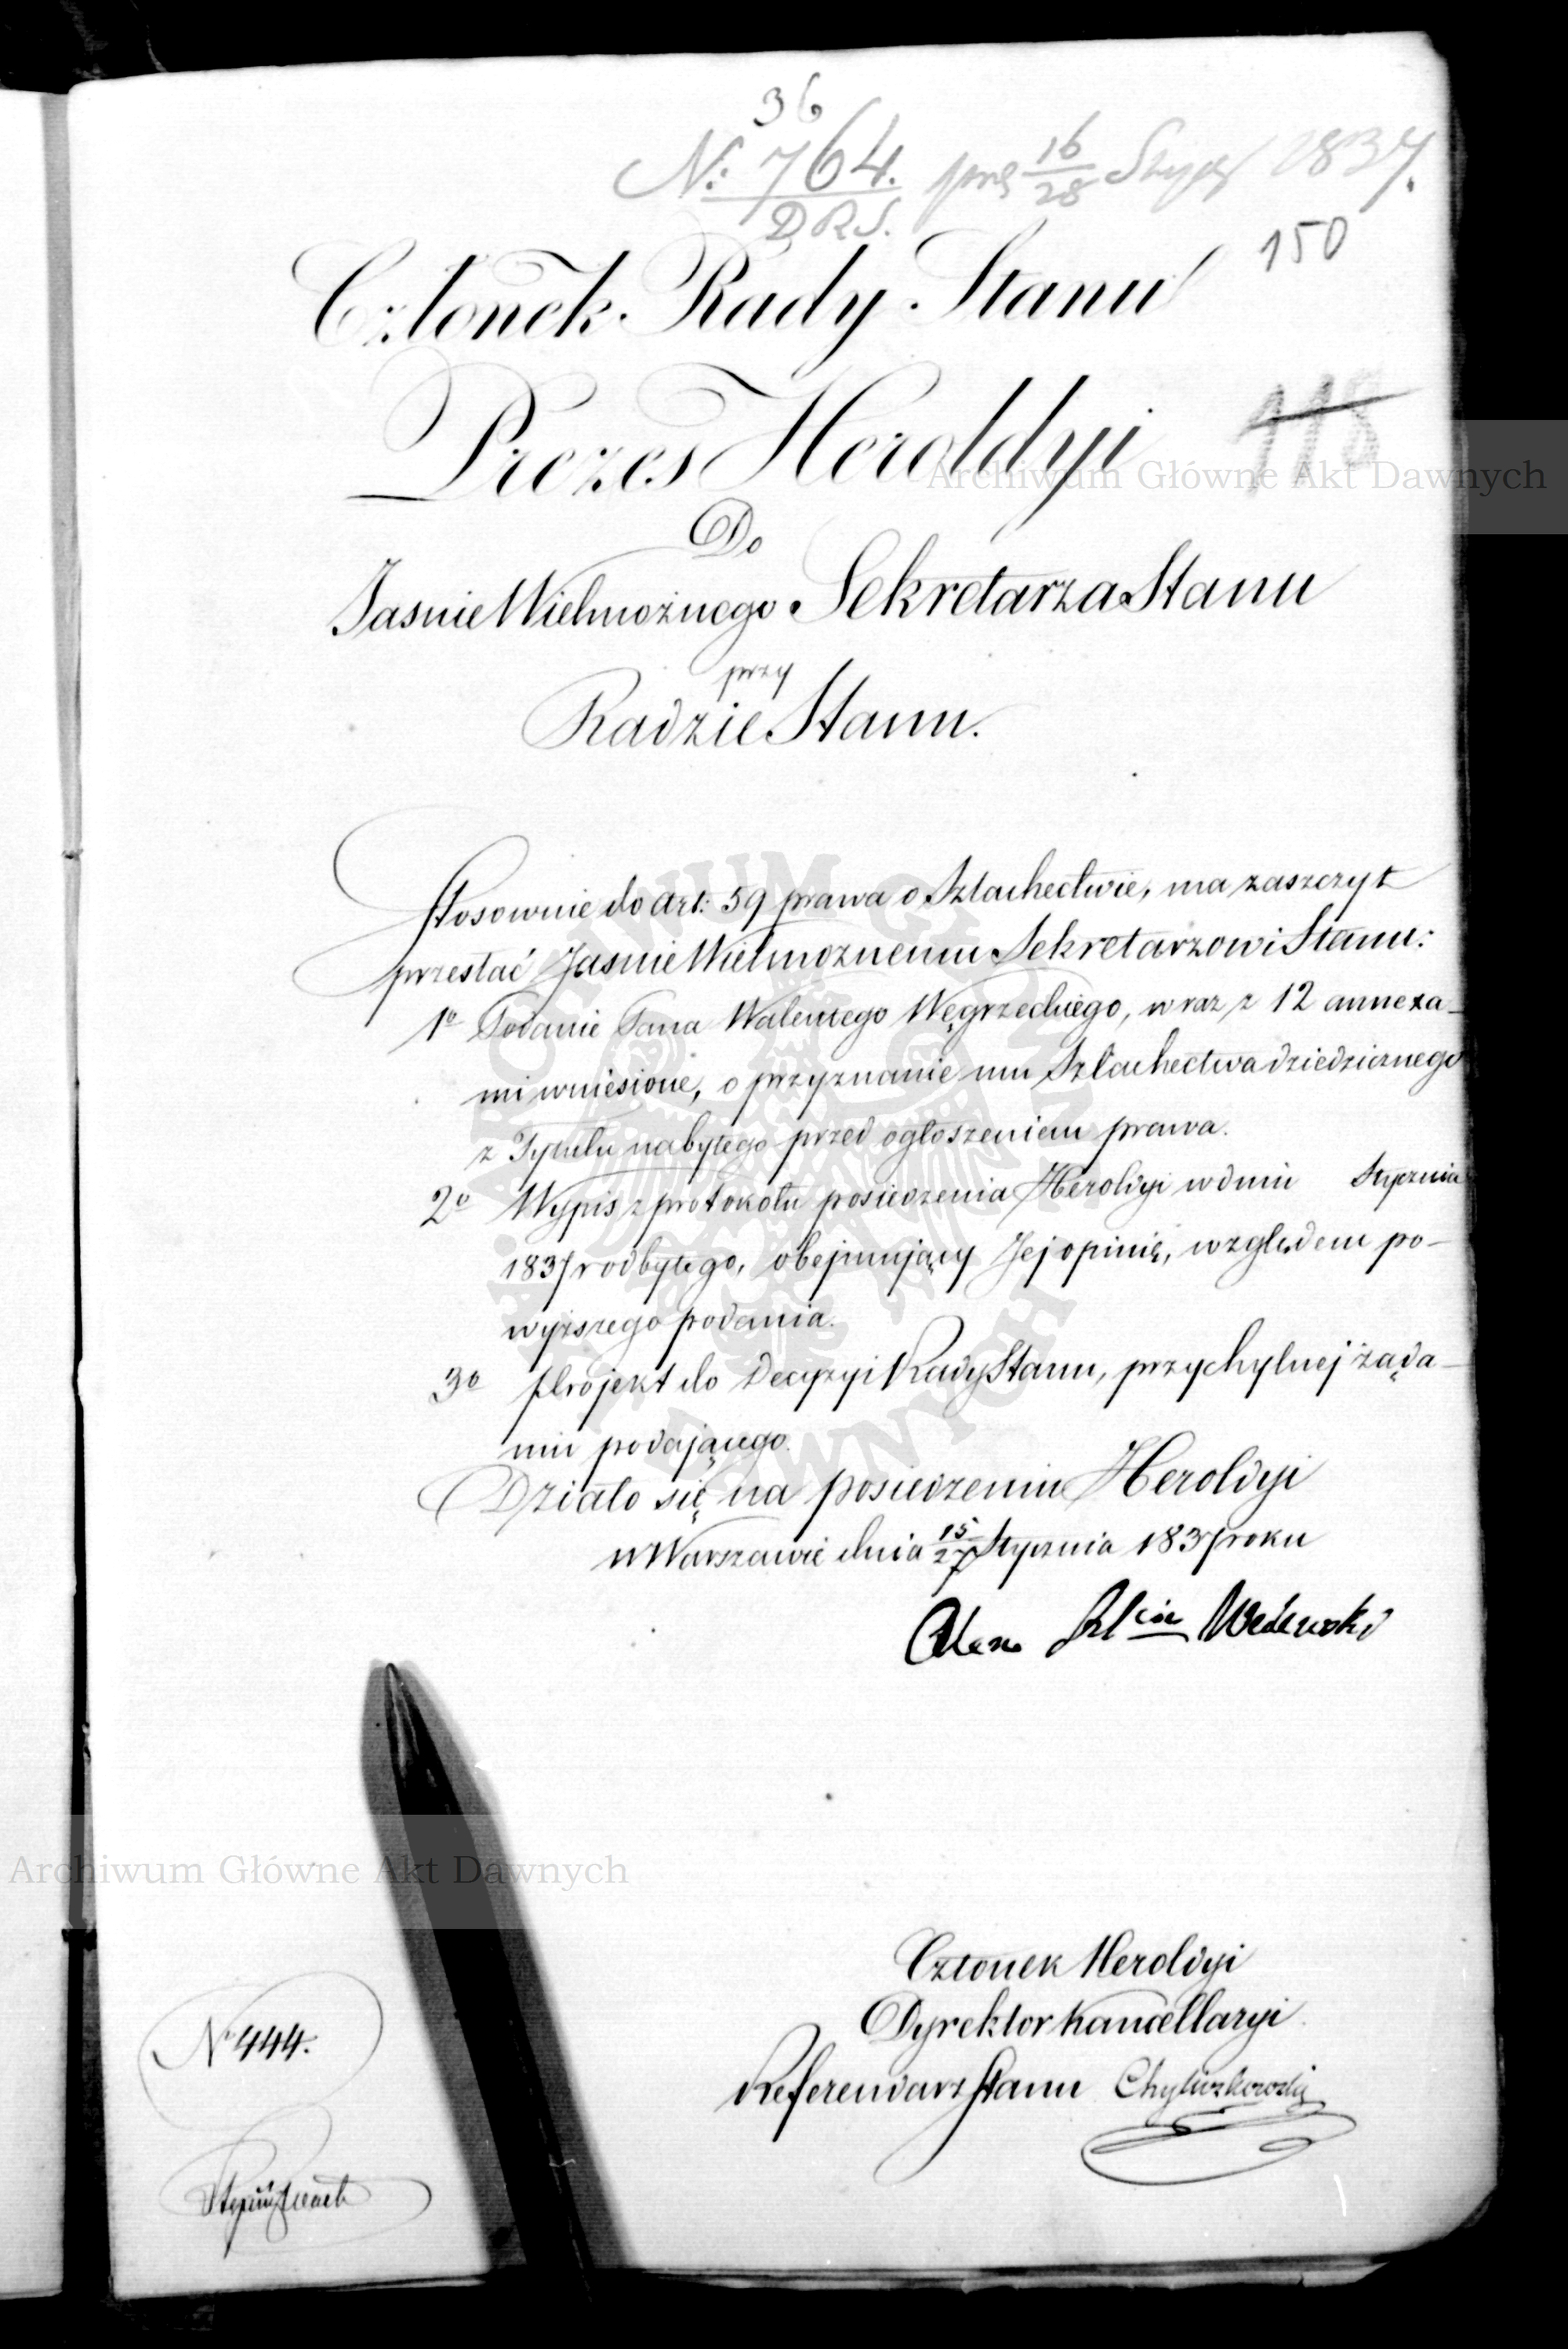 36
N: 764. 16/28 1837.
D.R.S.
150
Członek Rady Stanu
118
Prezes Heroldyi
Do
Jasnie Wielmożnego Sekretarza Stanu
przy
Radzie Stanu.
Stosownie do art: 59 prawa o Szlachectwie, ma zaszczyt
przesłać Jasnie Wielmożnemu Sekretarzowi Stanu:
1o Podanie Pana Walentego Węgrzeckiego, wraz z 12 annexa-
mi wniesione, o przyznanie mu Szlachectwa dziedzicznego
z Tytułu nabytego przed ogłoszeniem prawa.
2o Wypis z protokołu posiedzenia Heroldyi w dniu Stycznia
1837 r odbytego, obejmujący Jej opinię, względem po-
wyższego podania.
3o Projekt do Decyzyi Rady Stanu, przychylnej żąda-
niu podającego.
Działo się na posiedzeniu Heroldyi
w Warszawie dnia 15/27 Stycznia 1837 roku
Alex
Członek Heroldyi
Dyrektor Kancellaryi
Referendarz Stanu Chyliczkowski
N 444.
Archiwum Główne Akt Dawnych
Archiwum Główne Akt Dawnych
ARCHIWUM GŁÓWNE AKT DAWNYCH